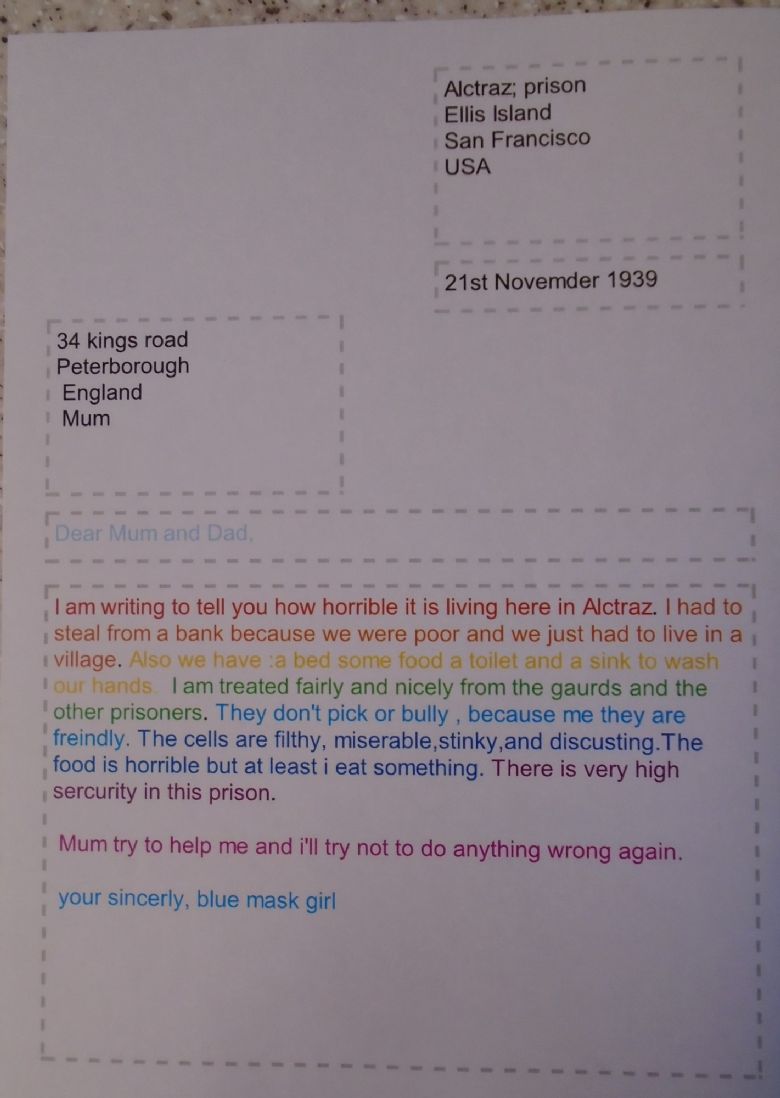 Alctraz; prison
Ellis Island
San Francisco
USA
21st Novemder 1939
34 kings road
Peterborough
England
Mum
Dear Mum and Dad,
I am writing to tell you how horrible it is living here in Alctraz. I had to
steal from a bank because we were poor and we just had to live in a
village. Also we have :a bed some food a toilet and a sink to wash
our hands. I am treated fairly and nicely from the gaurds and the
other prisoners. They don't pick or bully , because me they are
freindly. The cells are filthy, miserable,stinky,and discusting.The
food is horrible but at least i eat something. There is very high
sercurity in this prison.
Mum try to help me and i'll try not to do anything wrong again.
your sincerly, blue mask girl